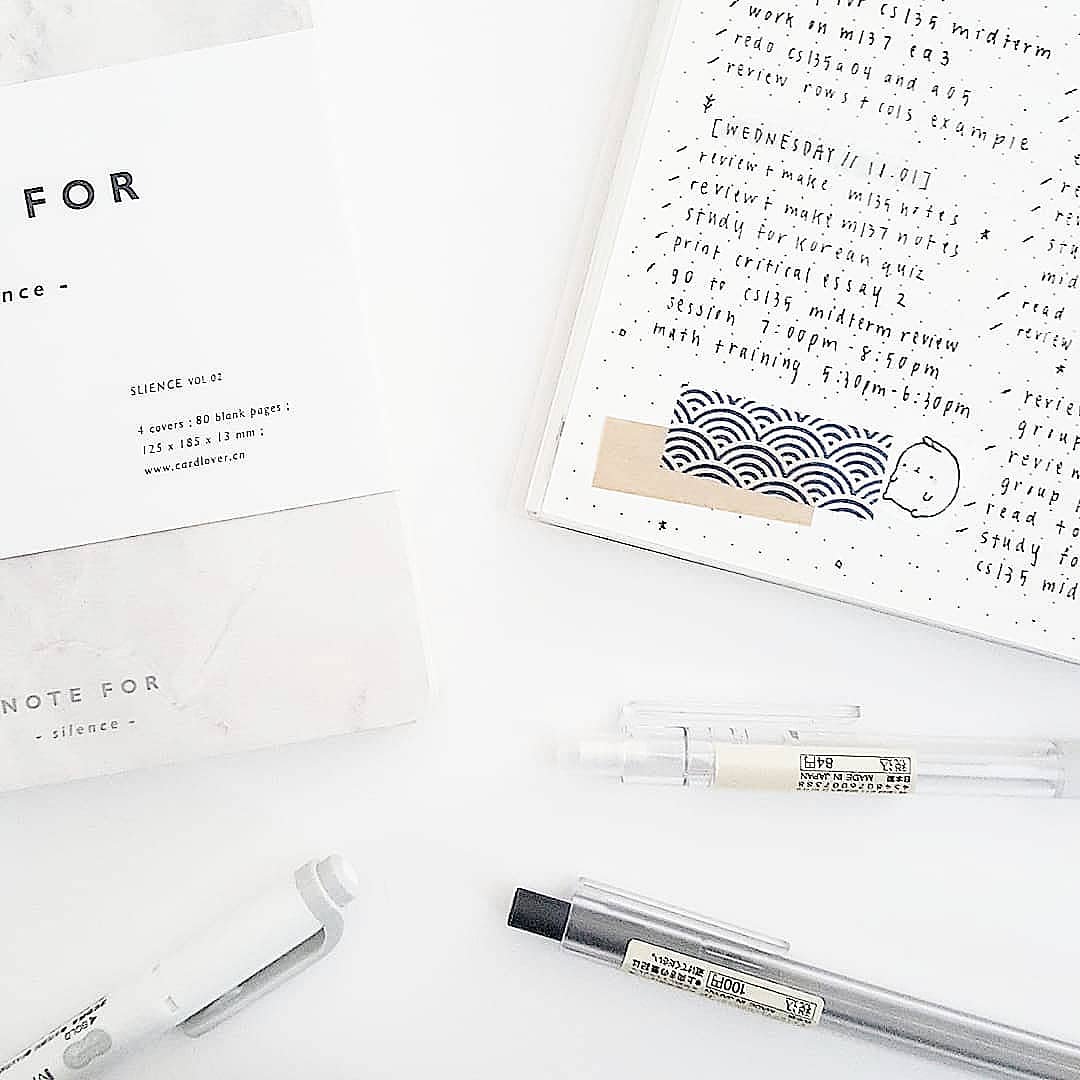 FOR
nce -
SLIENCE VOL 02
4 covers ; 80 blank pages ;
125 x 185 x 13 mm ;
www.cardlover.cn
NOTE FOR
- silence -
for cs135 midterm
work on m137 ea3
redo cs135 a04 and a05
review rows + cols example
[WEDNESDAY // 11.01]
review + make m135 notes
review + make m137 notes
study for korean quiz
print critical essay 2
go to cs135 midterm review
session 7:00pm - 8:50pm
math training 5:30pm-6:30pm
re
rev
stu
mid
read
review
review
group
review
group
read to
study fo
cs135 mid
日本製 税込
MADE IN JAPAN 84円
4548076007388
税込
100円
避けてください。
BOLD